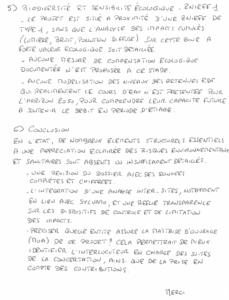 5) BIODIVERSITÉ ET SENSIBILITÉ ÉCOLOGIQUE - ZNIEFF 1
. LE PROJET EST SITUÉ À PROXIMITÉ D'UNE ZNIEFF DE
TYPE 1, SANS QUE L'ANALYSE DES IMPACTS CUMULÉS
(LUMIÈRE, BRUIT, POLLUTION DIFFUSE) SUR CETTE ZONE À
FORTE VALEUR ÉCOLOGIQUE SOIT DÉTAILLÉE.
. AUCUNE MESURE DE COMPENSATION ÉCOLOGIQUE
DOCUMENTÉE N'EST PROPOSÉE À CE STADE.
. AUCUNE MODÉLISATION DES NIVEAUX DES
QUI ALIMENTENT LE COURS D'EAU N'EST PRÉSENTÉE POUR
L'HORIZON 2050, POUR COMPRENDRE LEUR CAPACITÉ FUTURE
À SOUTENIR LE DÉBIT EN PÉRIODE D'ÉTIAGE.
6) CONCLUSION
EN L'ÉTAT, DE NOMBREUX ÉLÉMENTS STRUCTURELS ESSENTIELS
À UNE APPRÉCIATION ÉCLAIRÉE DES RISQUES ENVIRONNEMENTAUX
ET SANITAIRES SONT ABSENTS OU INSUFFISAMMENT DÉTAILLÉS.
. UNE RÉVISION DU DOSSIER AVEC DES DONNÉES
COMPLÈTES ET CHIFFRÉES
. L'INTÉGRATION D'UNE ANALYSE INTER-SITES, NOTAMMENT
EN LIEN AVEC, ET UNE RÉELLE TRANSPARENCE
SUR LES DISPOSITIFS DE CONTRÔLE ET DE LIMITATION
DES IMPACTS.
. PRÉCISER QUELLE ENTITÉ ASSURE LA MAÎTRISE D'OUVRAGE
(MOA) DE CE PROJET ? CELA PERMETTRAIT DE MIEUX
IDENTIFIER L'INTERLOCUTEUR EN CHARGE DES SUITES
DE LA CONCERTATION, AINSI QUE DE LA PRISE EN
COMPTE DES CONTRIBUTIONS.
MERCI